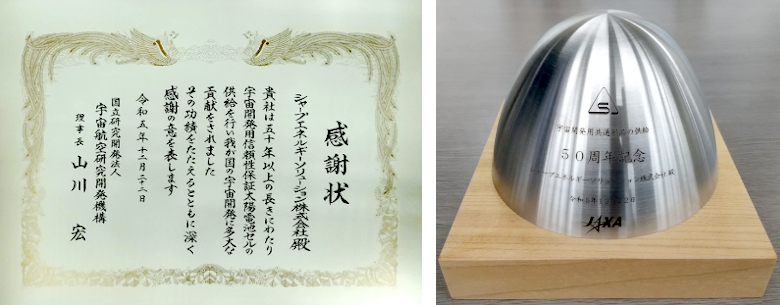 感謝状
シャープエネルギーソリューション株式会社 殿
貴社は五十年以上の長きにわたり
宇宙開発用信頼性保証太陽電池セルの
供給を行い我が国の宇宙開発に多大な
貢献をされました
その功績をたたえるとともに深く
感謝の意を表します
令和五年十二月二十二日
国立研究開発法人
宇宙航空研究開発機構
理事長 山川 宏
S
宇宙開発用共通部品の供給
50周年記念
シャープエネルギーソリューション株式会社 殿
令和5年12月22日
JAXA